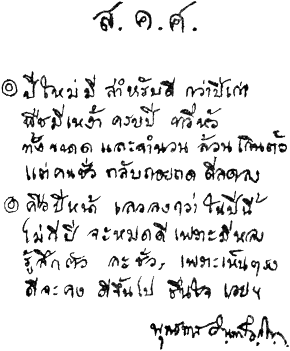 ส. ค. ศ.
๏ ปีใหม่มี สำหรับดี กว่าปีเก่า
พืชมีเหง้า ครบปี ทวีหัว
ทั้งขนาด และจำนวน ล้วนเกินตัว
แต่คนชั่ว กลับถอยถด ลดลง
๏ คือปีหน้า เลวลงกว่า ในปีนี้
ไม่กี่ปี จะหมดดี เพราะมีหลง
รู้สึกตัว ละชั่ว, เพราะเห็นตรง
ดีจะคง ดีขึ้นไป ชื่นใจ เอยฯ
พุทธทาส อินทปัญโญ